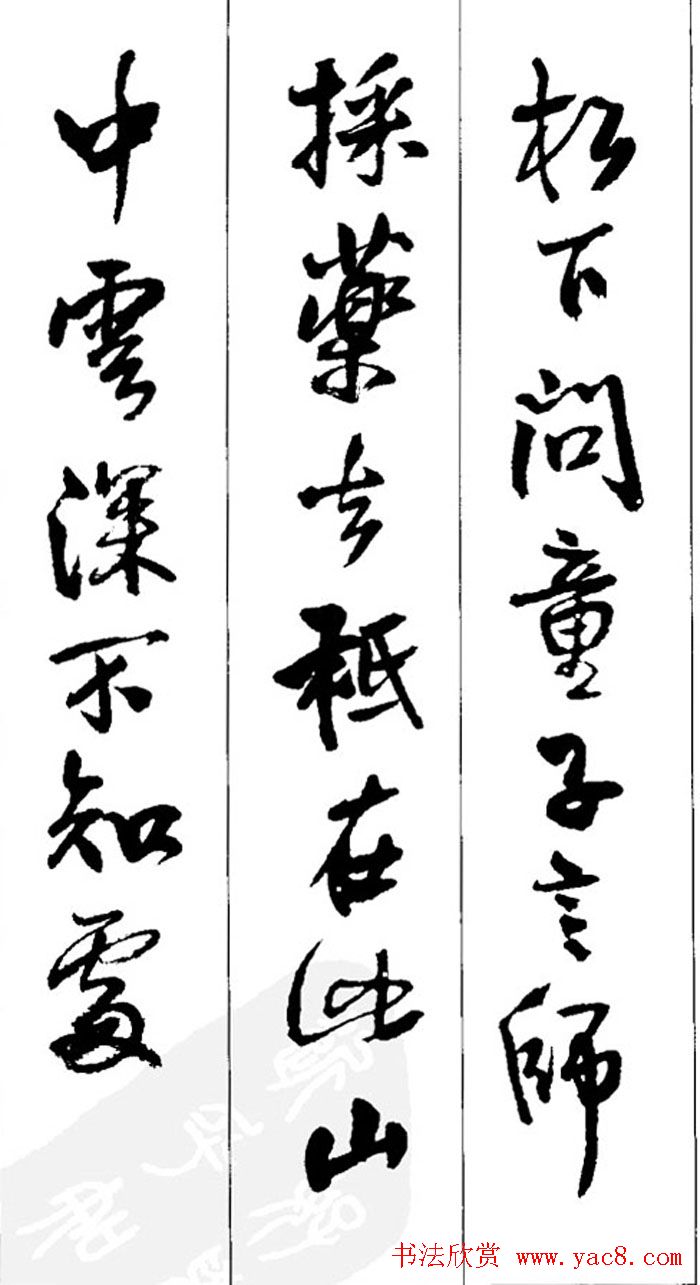 松下問童子言師
採藥去秖在此山
中雲深不知處
书法欣赏 www.yac8.com